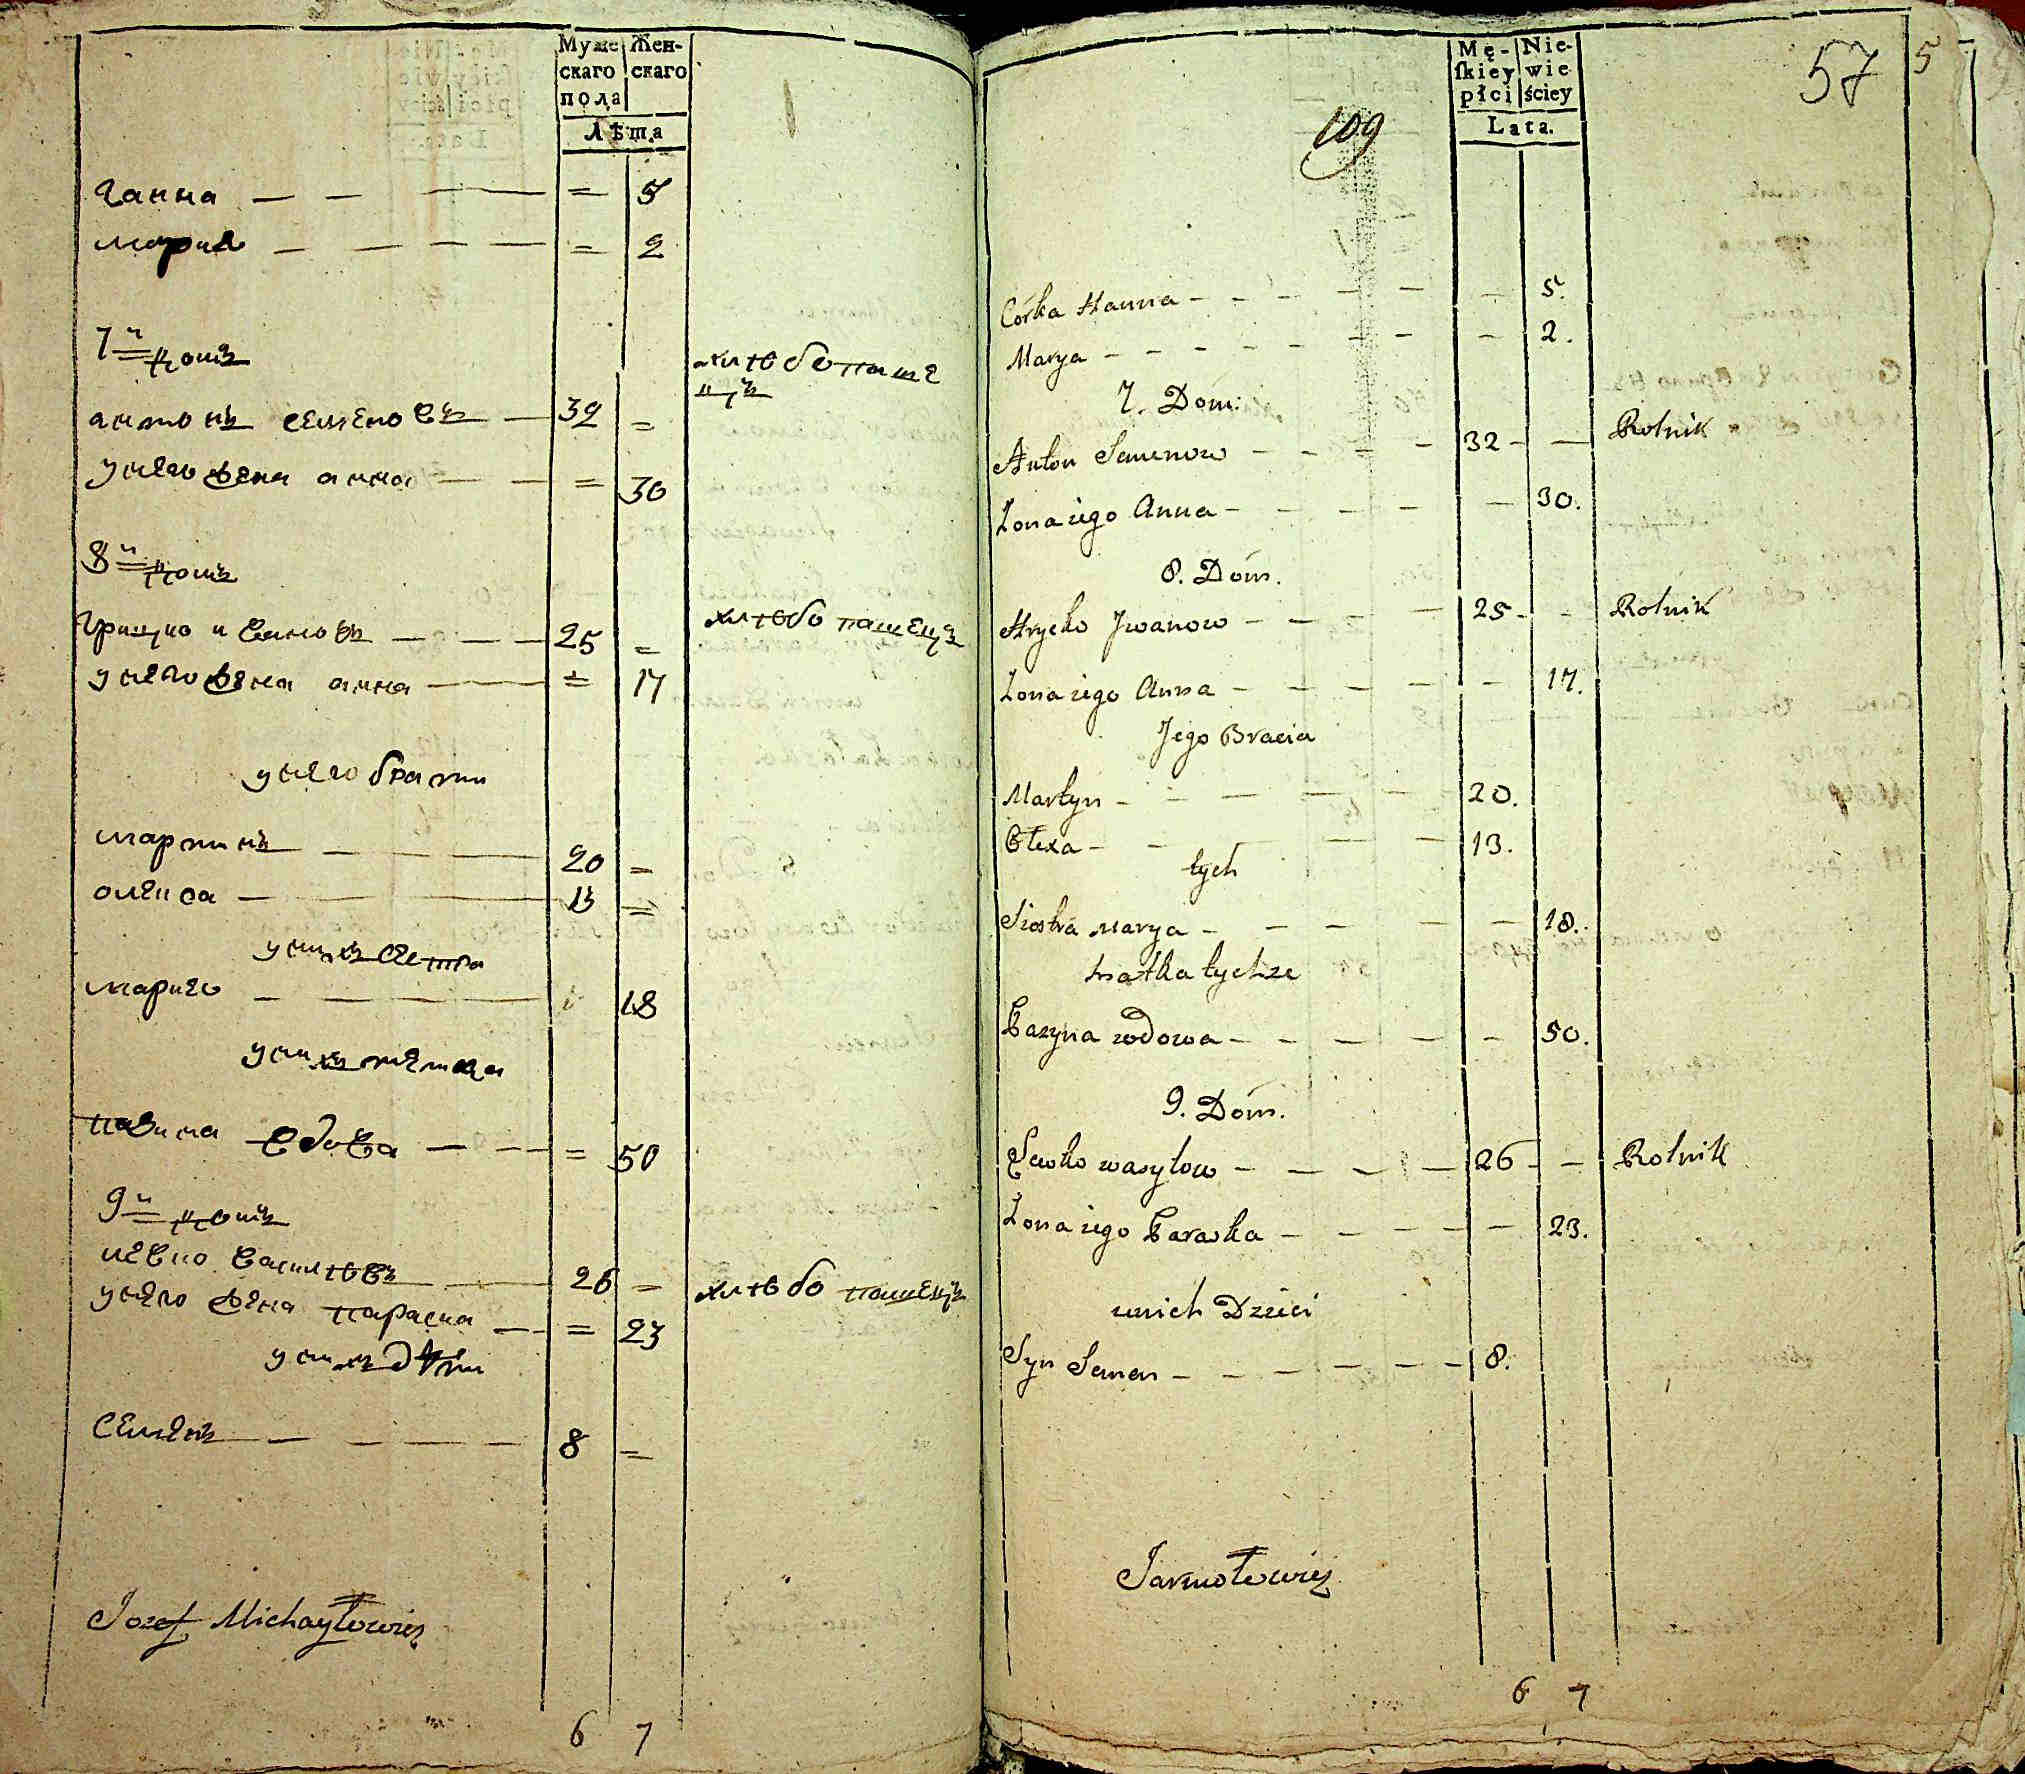 Муже Жен-
скаго скаго
пола
Лѣта
ганна — — — = 5
мария — — — — = 2
7й домъ
хлѣбопаше
цъ
антонъ семеновъ — 32 =
унего жена анна — — = 30
8й домъ
грицко ивановъ — — — 25 =
хлѣбо пашецъ
унего жена анна — — = 17
унего брати
мартинъ — — 20 =
олекса — — 13 =
унихъ сестра
мария — — — — 18
унихъ матка
пазина вдова — — — = 50
9й домъ
левко василѣвъ — 26 =
хлѣбо пашецъ
унего жена параска — — = 23
унихъ дѣти
семенъ — — — — 8 =
Jozef Michayłowicz
6 7
57 5
109
Mę- Nie-
ſkiey wie
płci ściey
Lata.
Córka Hanna — — — — — — 5.
Marya — — — — — — — 2.
7. Dóm.
Anton Semenow — — — — 32 — — Rolnik
Żona iego Anna — — — — — 30.
8. Dóm.
Hrycko Jwanow — — — — 25 — — Rolnik
Żona iego Anna — — — — — 17.
Jego Bracia
Martyn — — — — — 20.
Olexa — — — — 13.
tych
Siostra Marya — — — — — 18.
Matka tychże
Pazyna wdowa — — — — — 50.
9. Dóm.
Lewko wasylow — — — — 26 — — Rolnik
Żona iego Paraska — — — — — 23.
unich Dzieci
Syn Semen — — — — — 8.
Jarmołowicz
6 7